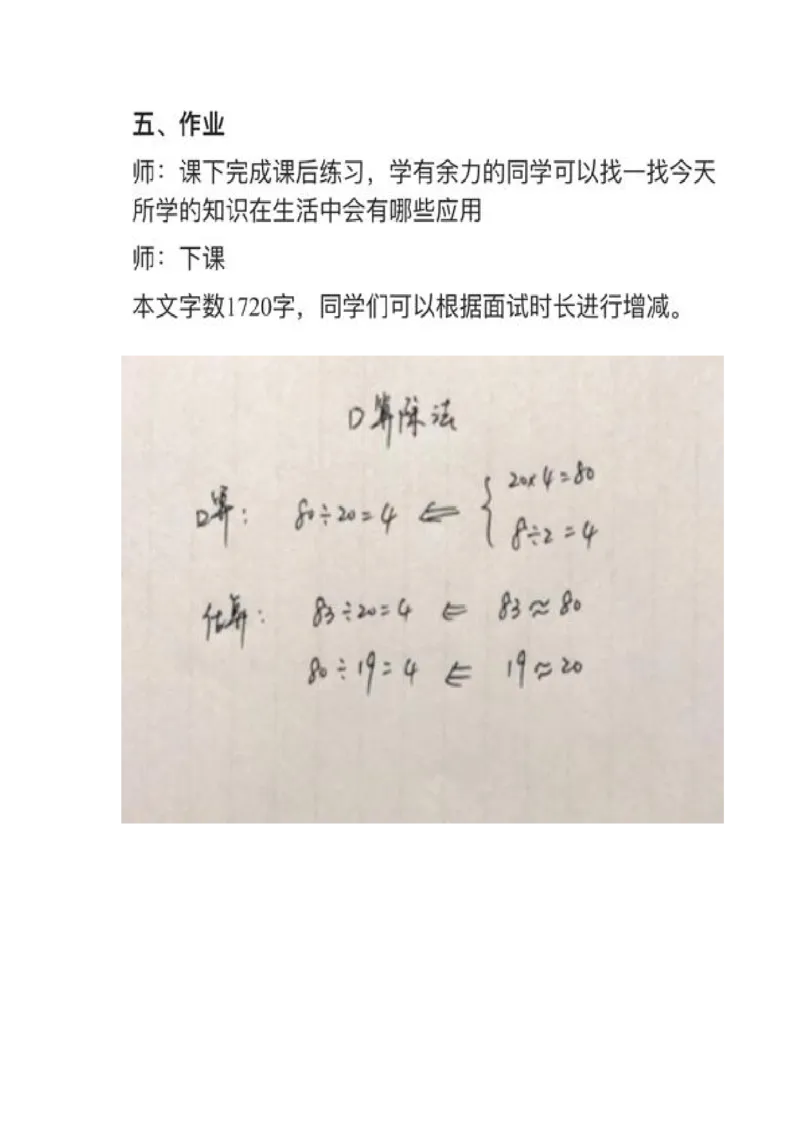 五、作业
师：课下完成课后练习，学有余力的同学可以找一找今天
所学的知识在生活中会有哪些应用
师：下课
本文字数1720字，同学们可以根据面试时长进行增减。
口算除法
口算： 80÷20=4 ⇐ { 20×4=80
8÷2=4
估算： 83÷20=4 ⇐ 83≈80
80÷19=4 ⇐ 19≈20